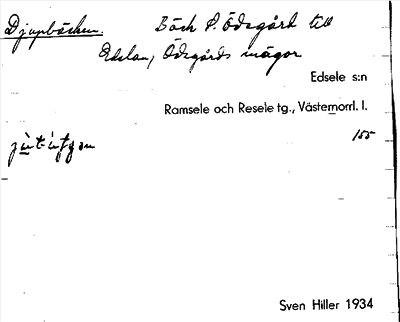 Djupbäcken. Bäck S. Ödsgård till
Edslan, Ödsgårds mägor
Edsele s:n
Ramsele och Resele tg., Västernorrl. l.
155
Sven Hiller 1934